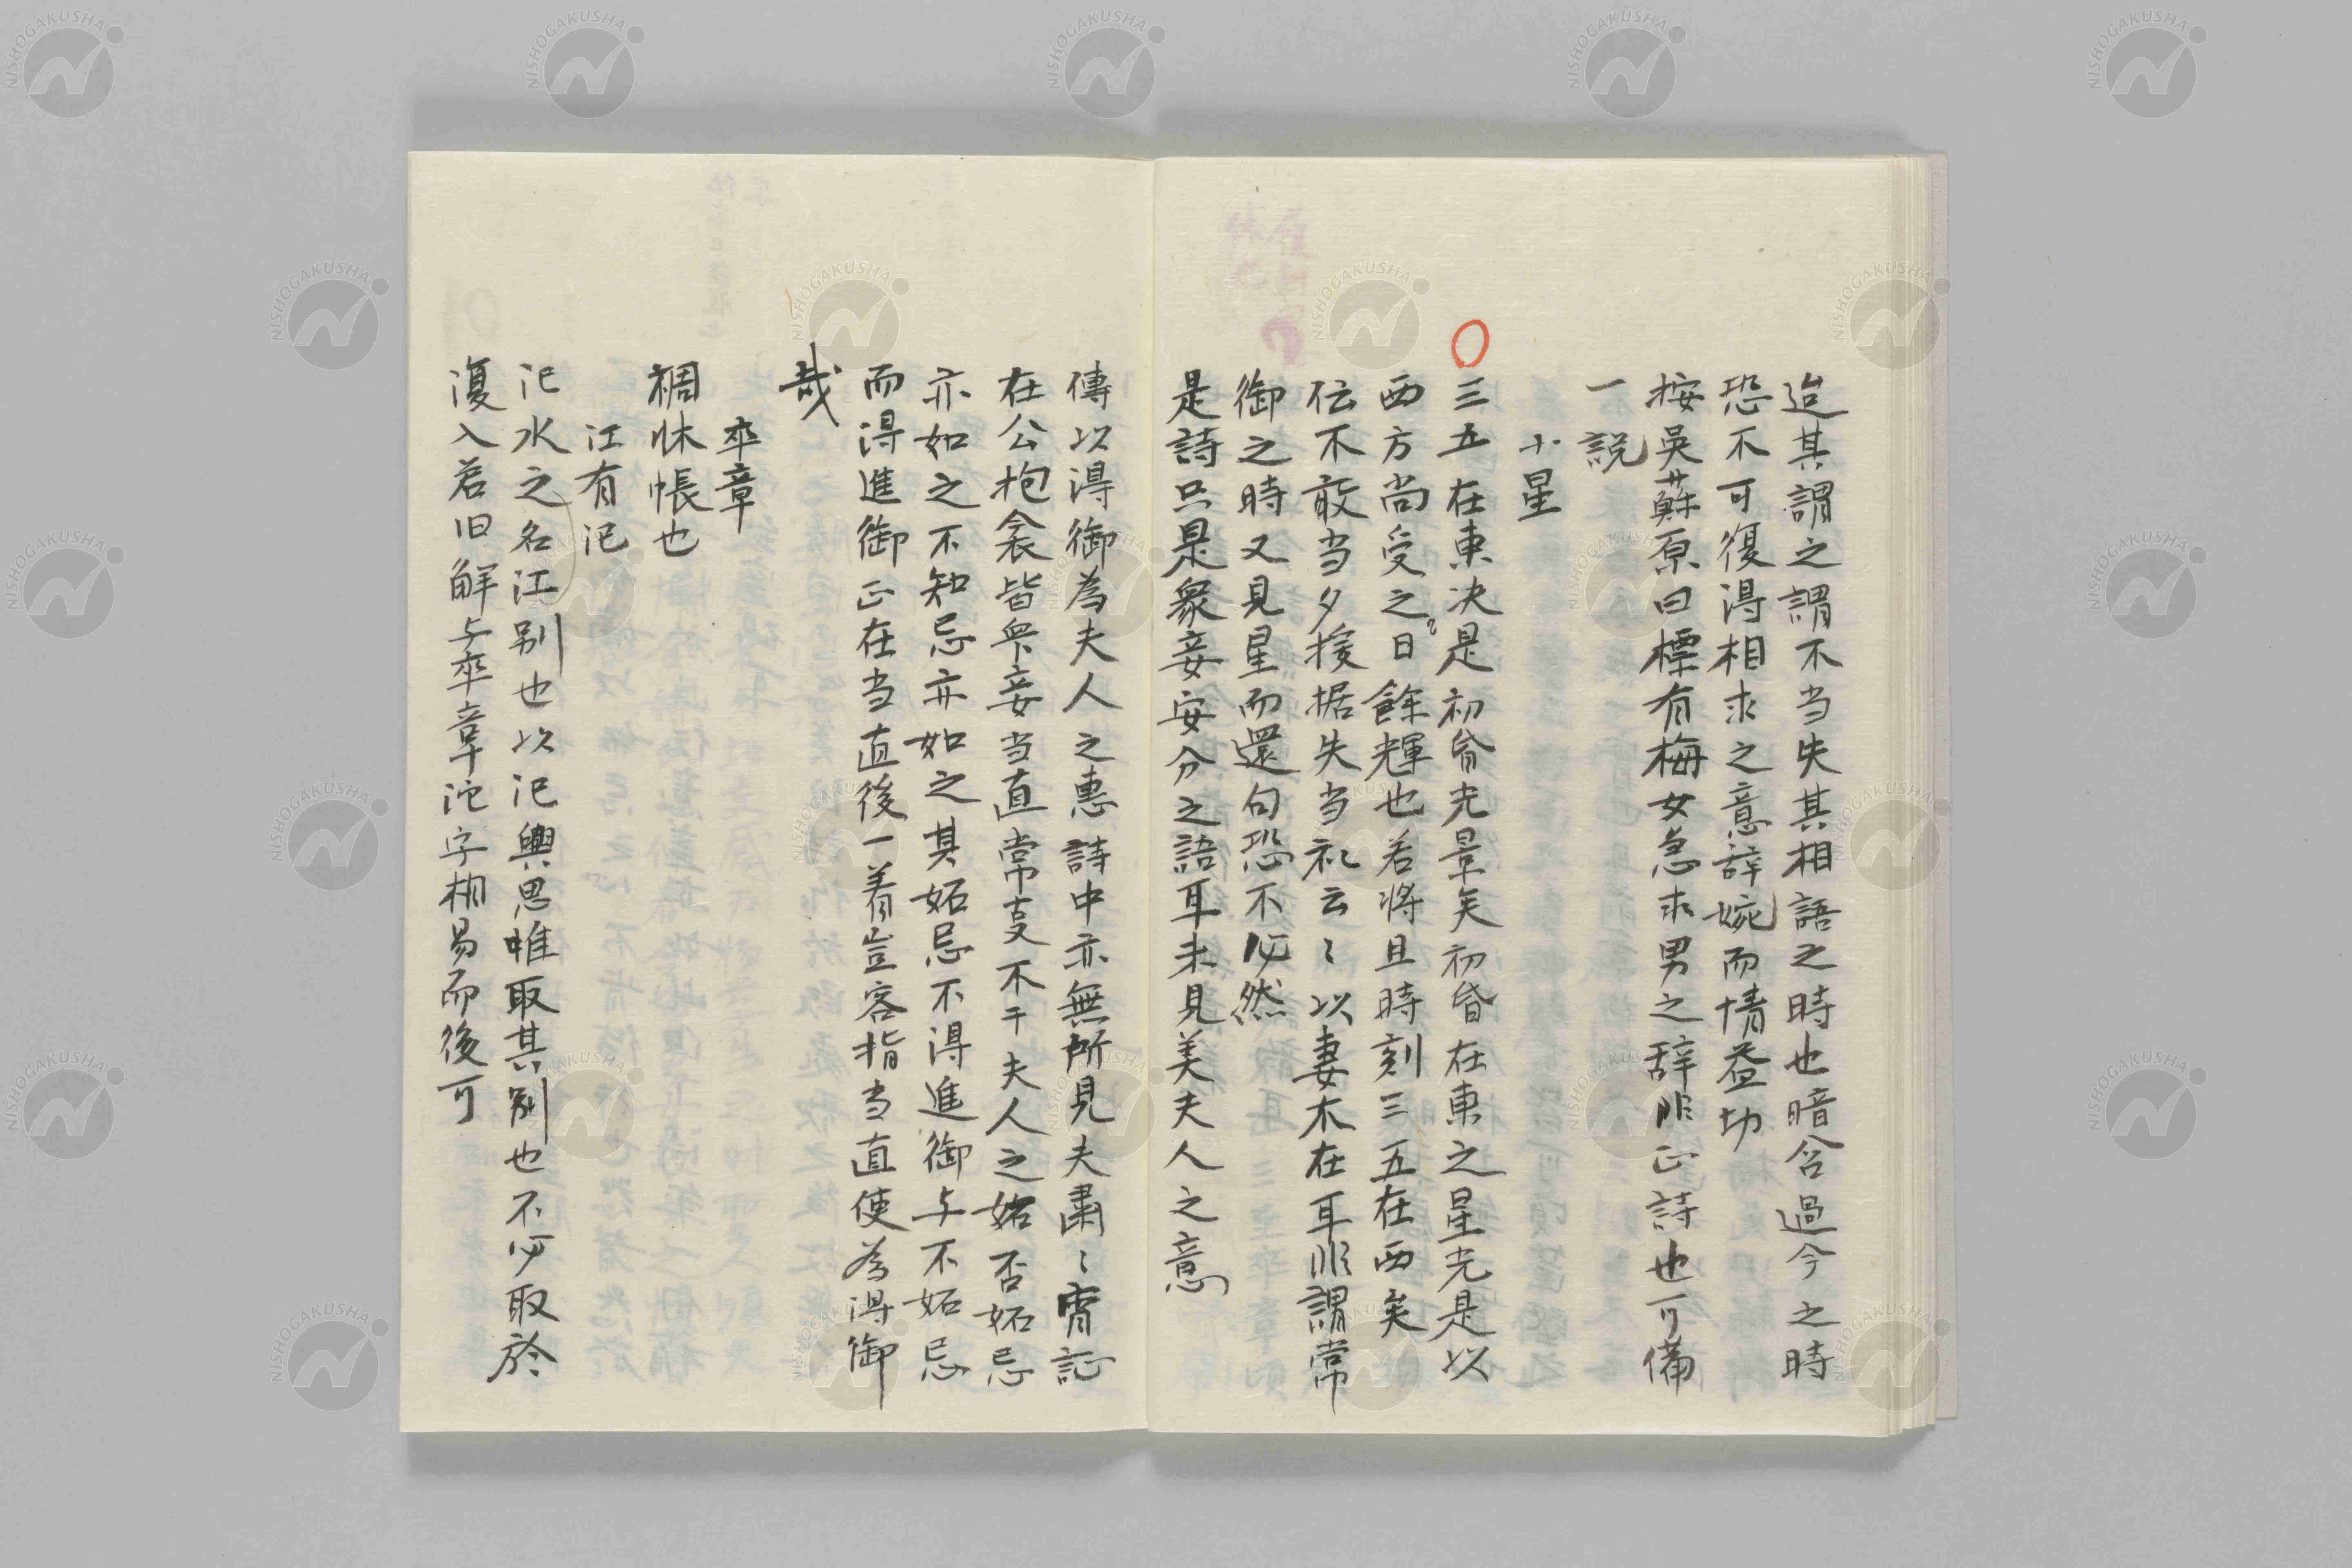 迨其謂之謂不当失其相語之時也暗含過今之時
恐不可復得相求之意辞婉而情益切
按吳蘇原曰標有梅女急求男之辞非正詩也可備
一説
小星
三五在東決是初昏光景矣初昏在東之星光是以
西方尚受之日餘輝也若将旦時刻三五在西矣
伝不敢当夕援据失当礼云〻以妻不在耳非謂常
御之時又見星而還句恐不必然
是詩只是衆妾安分之語耳未見美夫人之意
傳以得御為夫人之惠詩中亦無所見夫粛〻宵証
在公抱衾皆卑妾当直常事不干夫人之妬否妬忌
亦如之不知忌亦如之其妬忌不得進御与不妬忌
而得進御正在当直後一着豈容指当直使為得御
哉
卒章
裯牀帳也
江有汜
汜水之名江別也以汜興思惟取其別也不必取於
復入若旧解与卒章沱字相易而後可
NISHOGAKUSHA